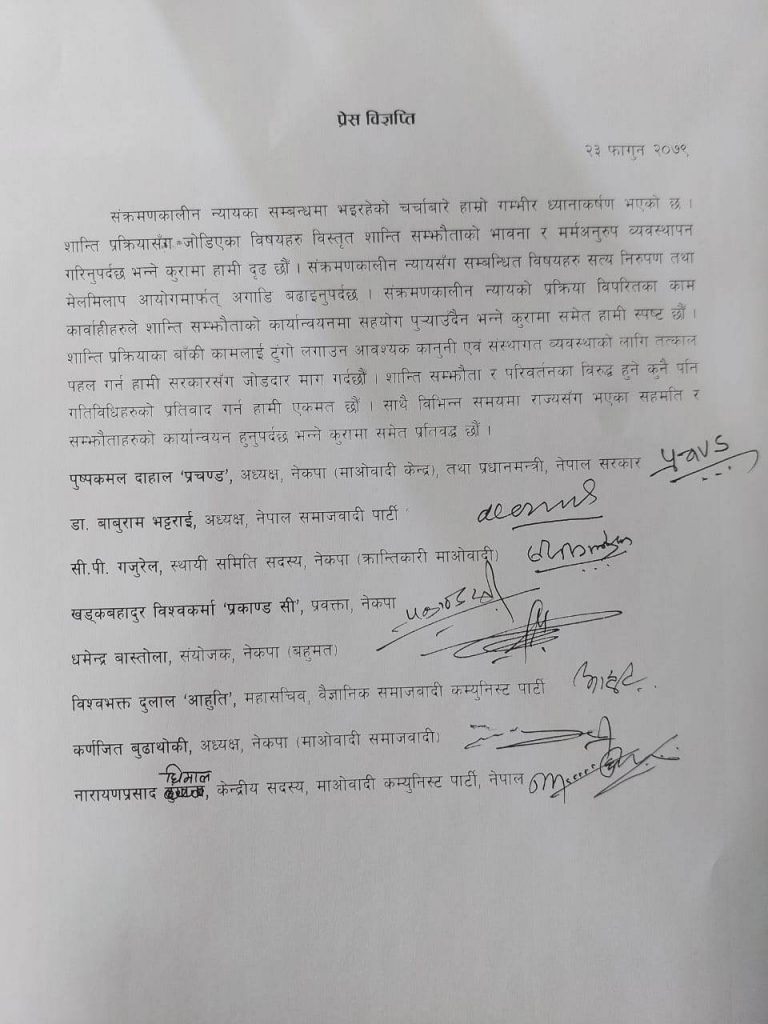 प्रेस विज्ञप्ति
२३ फागुन २०७९
संक्रमणकालीन न्यायका सम्बन्धमा भइरहेको चर्चाबारे हाम्रो गम्भीर ध्यानाकर्षण भएको छ ।
शान्ति प्रक्रियासँग जोडिएका विषयहरु विस्तृत शान्ति सम्झौताको भावना र मर्मअनुरुप व्यवस्थापन
गरिनुपर्दछ भन्ने कुरामा हामी दृढ छौं । संक्रमणकालीन न्यायसँग सम्बन्धित विषयहरु सत्य निरुपण तथा
मेलमिलाप आयोगमार्फत् अगाडि बढाइनुपर्दछ । संक्रमणकालीन न्यायको प्रक्रिया विपरितका काम
कार्वाहीहरुले शान्ति सम्झौताको कार्यान्वयनमा सहयोग पुर्‍याउँदैन भन्ने कुरामा समेत हामी स्पष्ट छौं ।
शान्ति प्रक्रियाका बाँकी कामलाई टुंगो लगाउन आवश्यक कानुनी एवं संस्थागत व्यवस्थाको लागि तत्काल
पहल गर्न हामी सरकारसँग जोडदार माग गर्दछौं । शान्ति सम्झौता र परिवर्तनका विरुद्ध हुने कुनै पनि
गतिविधिहरुको प्रतिवाद गर्न हामी एकमत छौं । साथै विभिन्न समयमा राज्यसँग भएका सहमति र
सम्झौताहरुको कार्यान्वयन हुनुपर्दछ भन्ने कुरामा समेत प्रतिवद्ध छौं ।
पुष्पकमल दाहाल ‘प्रचण्ड’, अध्यक्ष, नेकपा (माओवादी केन्द्र), तथा प्रधानमन्त्री, नेपाल सरकार
डा. बाबुराम भट्टराई, अध्यक्ष, नेपाल समाजवादी पार्टी
सी.पी. गजुरेल, स्थायी समिति सदस्य, नेकपा (क्रान्तिकारी माओवादी)
खड्कबहादुर विश्वकर्मा ‘प्रकाण्ड सी’, प्रवक्ता, नेकपा
धमेन्द्र बास्तोला, संयोजक, नेकपा (बहुमत)
विश्वभक्त दुलाल ‘आहुति’, महासचिव, वैज्ञानिक समाजवादी कम्युनिस्ट पार्टी आहुति
कर्णजित बुढाथोकी, अध्यक्ष, नेकपा (माओवादी समाजवादी)
नारायणप्रसाद धिमाल, केन्द्रीय सदस्य, माओवादी कम्युनिस्ट पार्टी, नेपाल